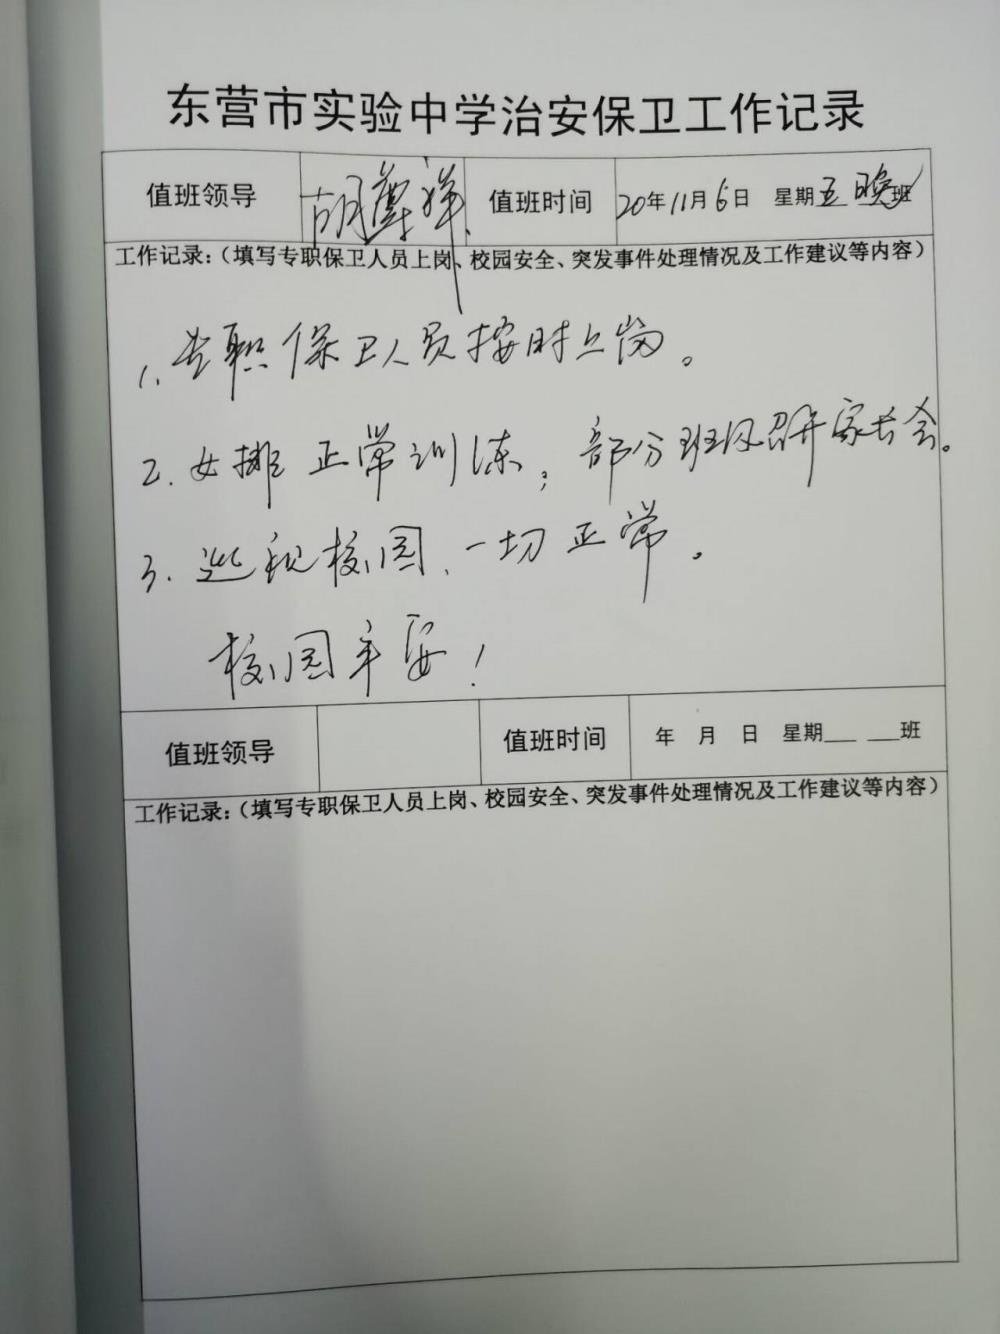 东营市实验中学治安保卫工作记录
值班领导 胡尊祥 值班时间 20年11月6日 星期五 晚班
工作记录：（填写专职保卫人员上岗、校园安全、突发事件处理情况及工作建议等内容）
1. 专职保卫人员按时上岗。
2. 女排正常训练；部分班级召开家长会。
3. 巡视校园、一切正常。
校园平安！
值班领导 值班时间 年 月 日 星期___ ___班
工作记录：（填写专职保卫人员上岗、校园安全、突发事件处理情况及工作建议等内容）